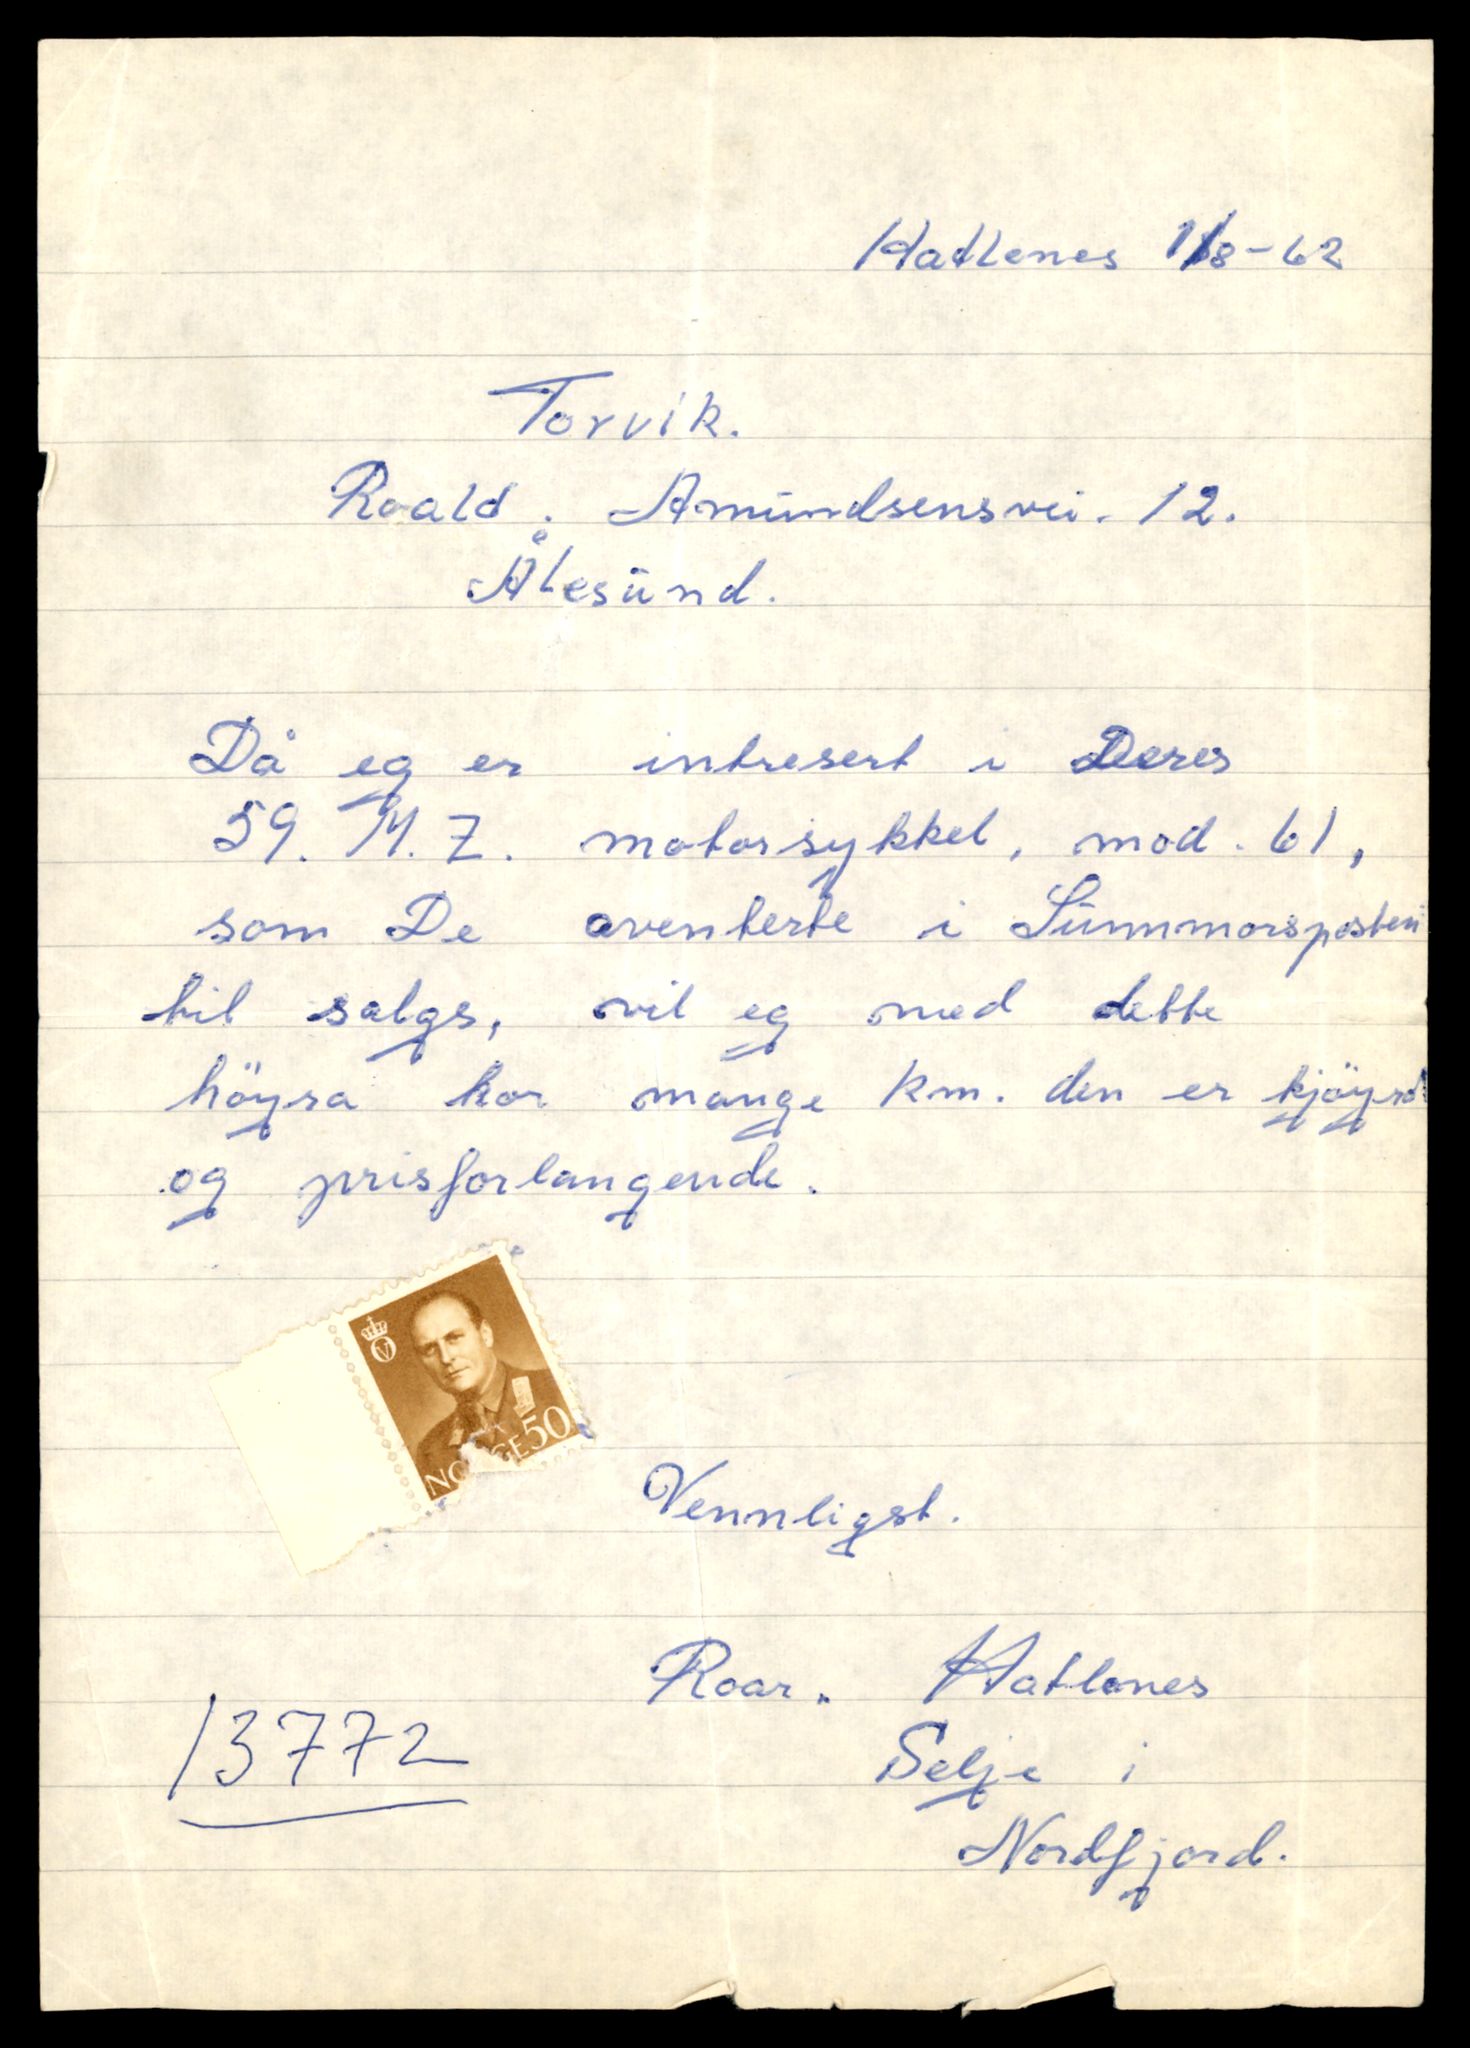 Hatlenes 1/8-62
Torvik.
Roald. Amundsensvei. 12.
Ålesund.
Då eg er intresert i Deres
59. M.Z. motorsykkel, mod. 61,
som De aventerte i Sunnmorsposten
til salgs, vil eg med dette
höyra kor mange km. den er kjöyrd
og prisforlangende.
V
NO GE 50
Vennligst.
Roar. Hatlenes
13772
Selje i
Nordfjord.